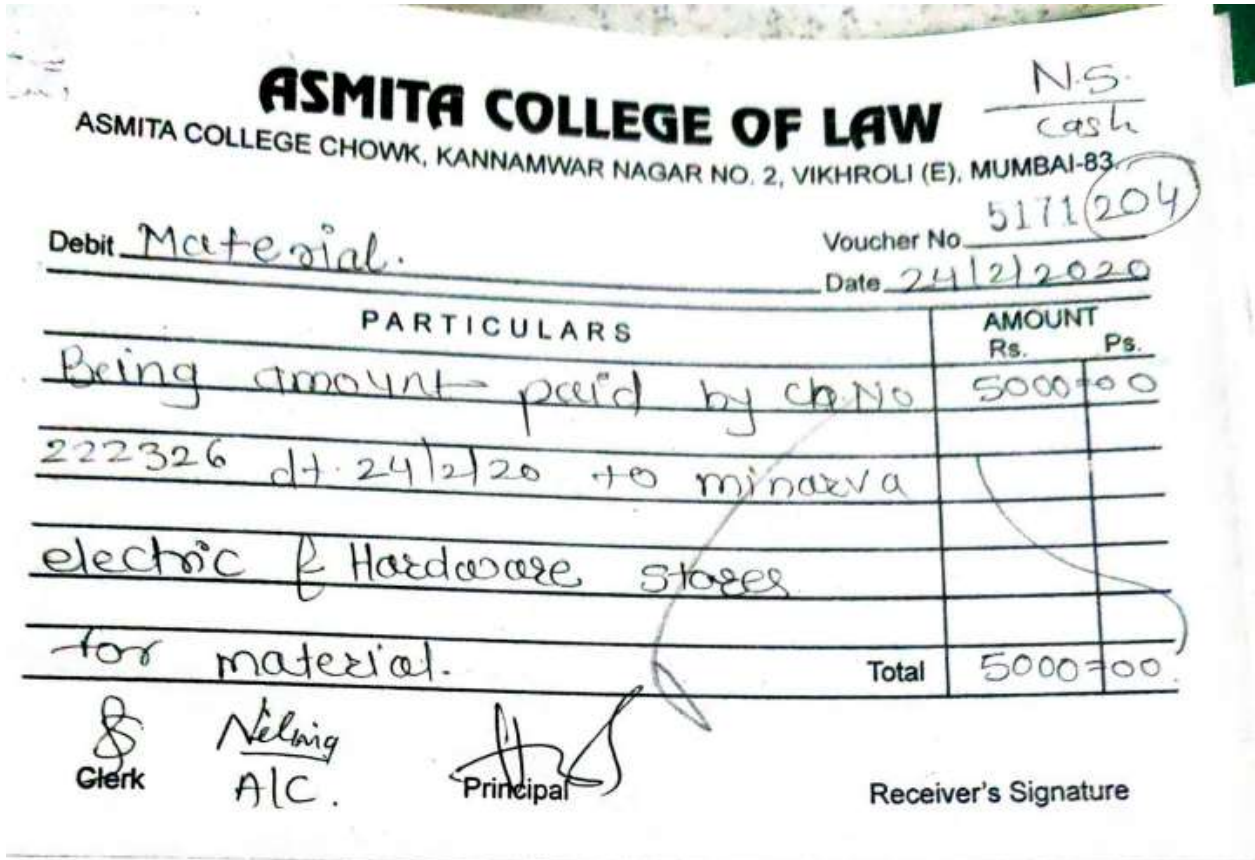 ASMITA COLLEGE OF LAW
N.S.
cash
ASMITA COLLEGE CHOWK, KANNAMWAR NAGAR NO. 2, VIKHROLI (E), MUMBAI-83.
Debit Material.
Voucher No. 5171 204
Date 24/2/2020
PARTICULARS
AMOUNT
Rs. Ps.
Being amount paid by ch.No 5000=00
222326 dt. 24/2/20 to minarva
electric & Hardware stores
for material.
Total 5000=00
Clerk
A/C.
Principal
Receiver's Signature